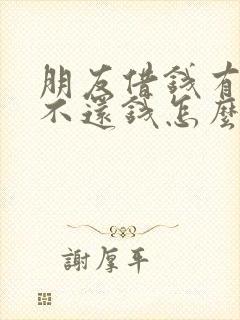 朋友借錢有
不還錢怎麼
謝厚平